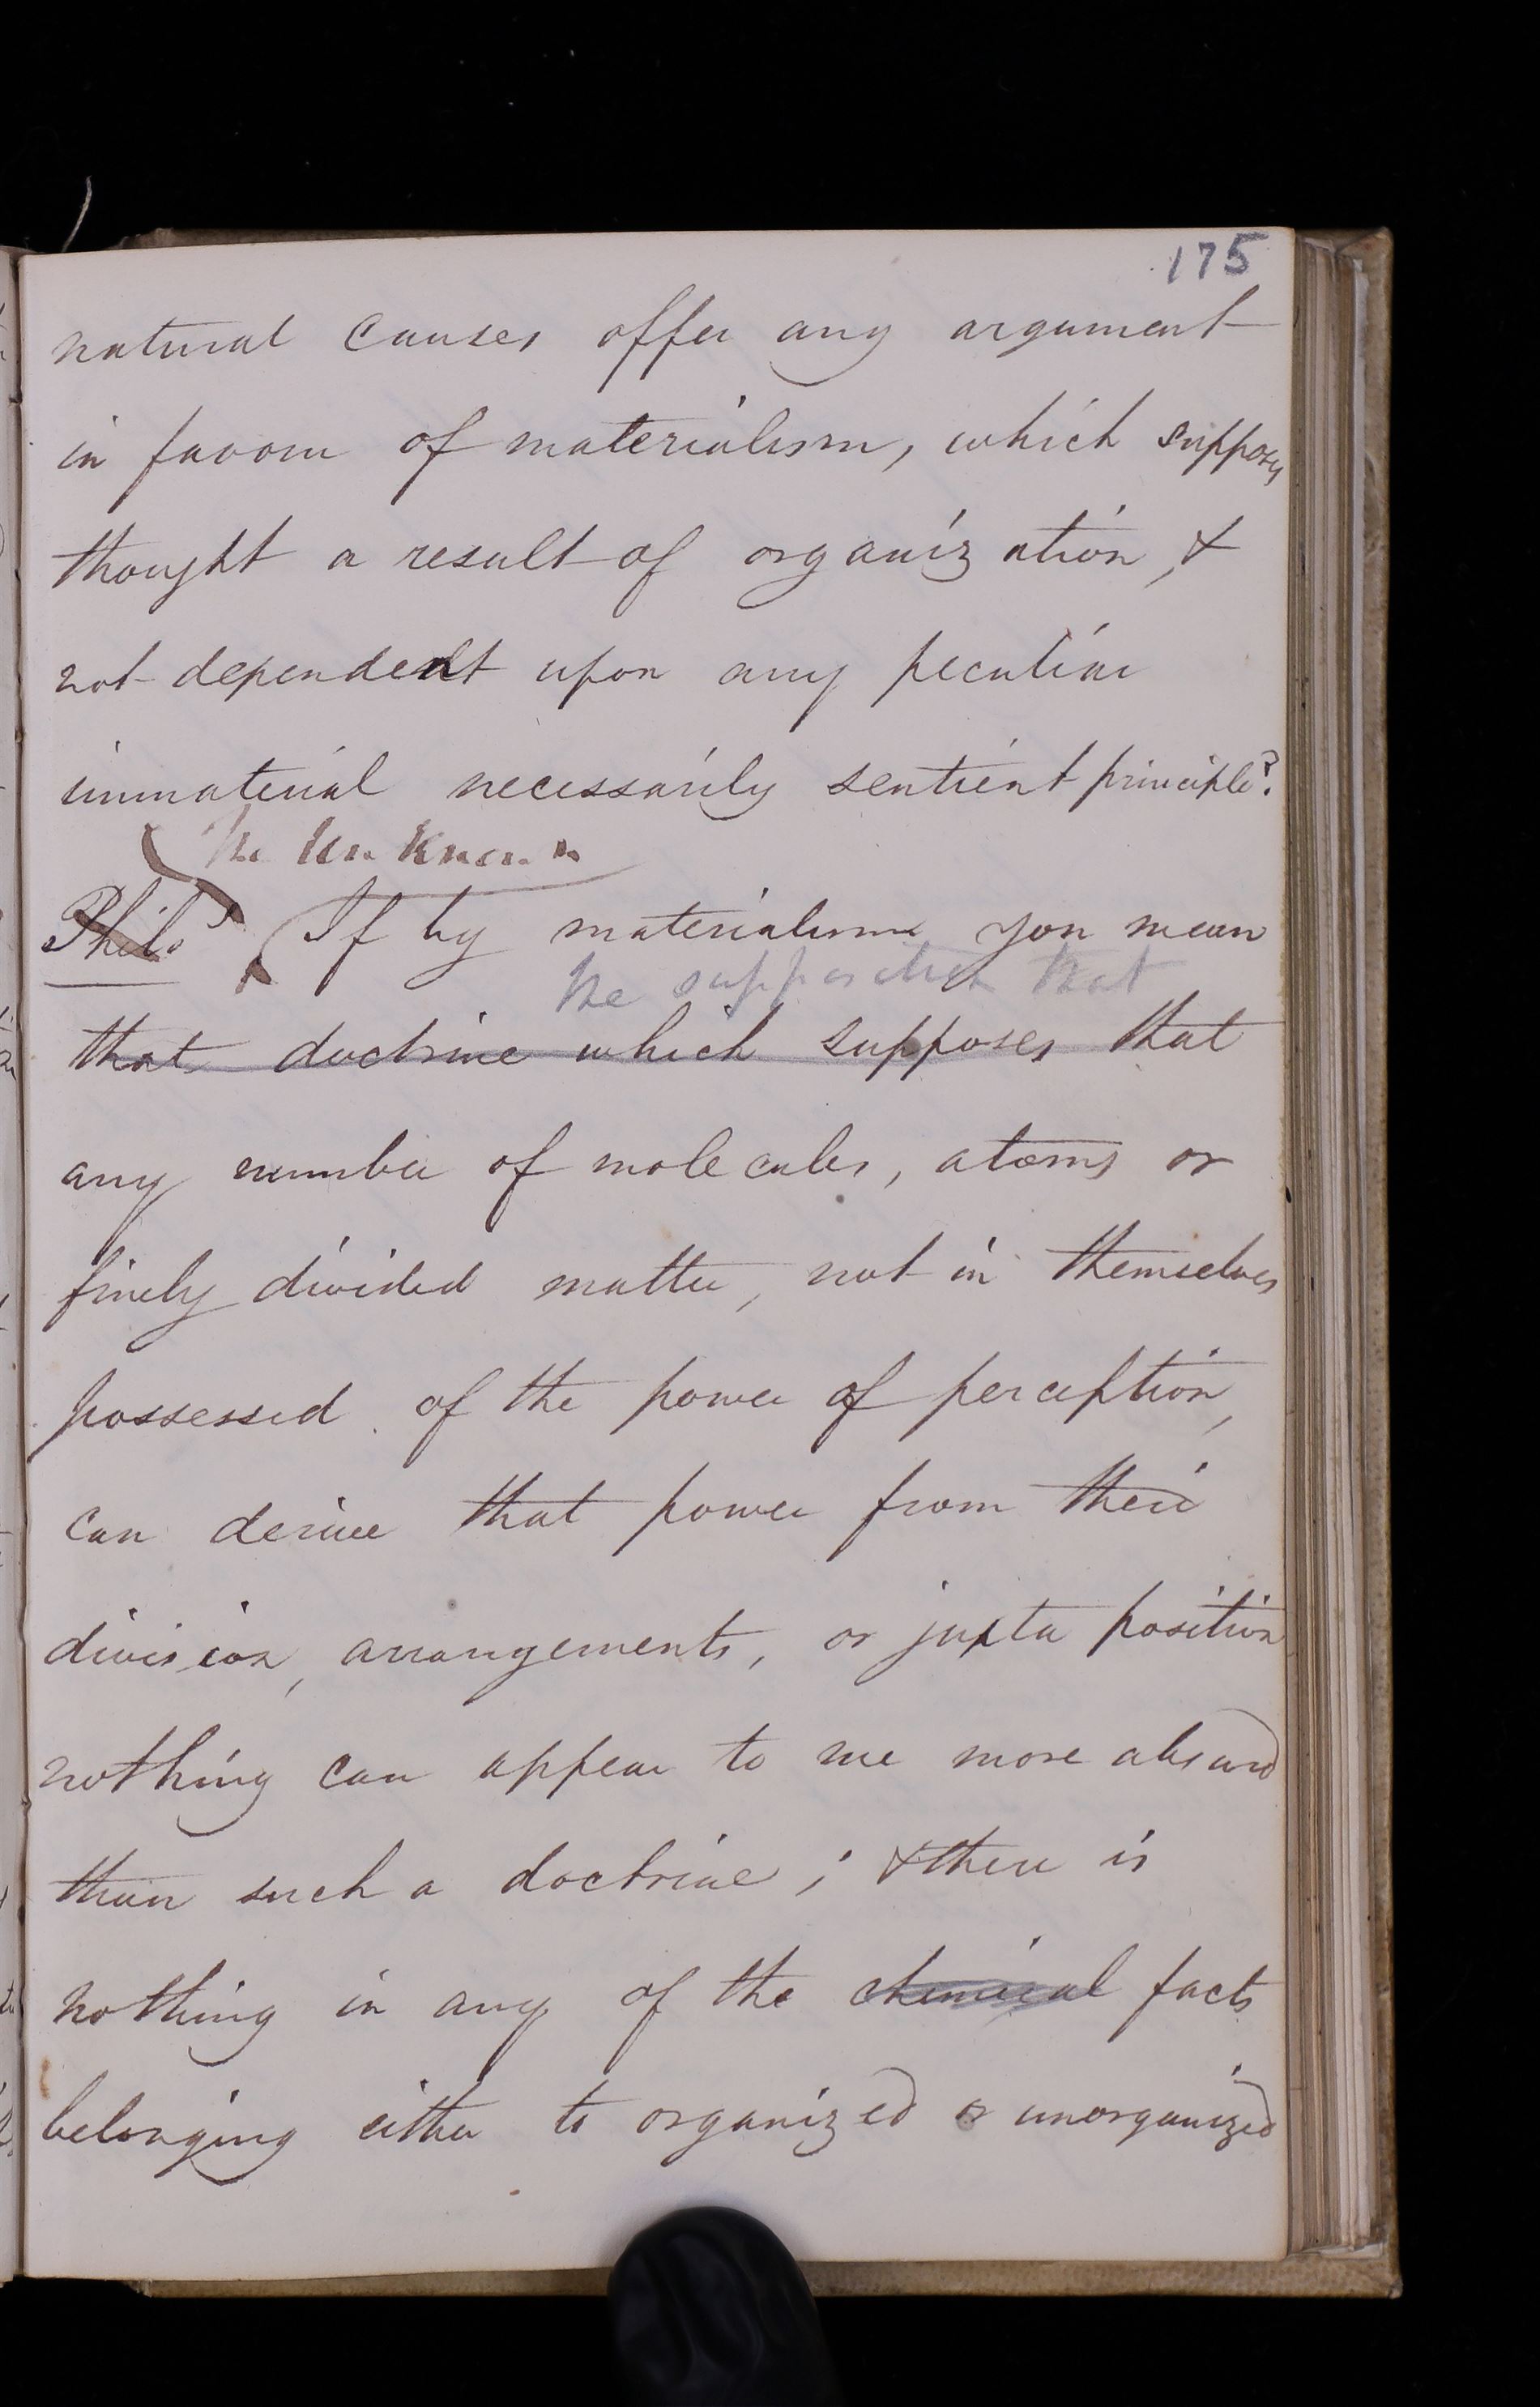 175
natural causes offer any argument
in favour of materialism, which supposes
thought a result of organization, &
not dependent upon any peculiar
immaterial necessarily sentient principle?
The Unknown
Philo If by materialism you mean
the supposition that
that doctrine which supposes that
any number of molecules, atoms or
finely divided matter, not in themselves
possessed of the power of perception,
can derive that power from their
division, arrangements, or juxta position
nothing can appear to me more absurd
than such a doctrine; & there is
nothing in any of the chemical facts
belonging either to organized or unorganized